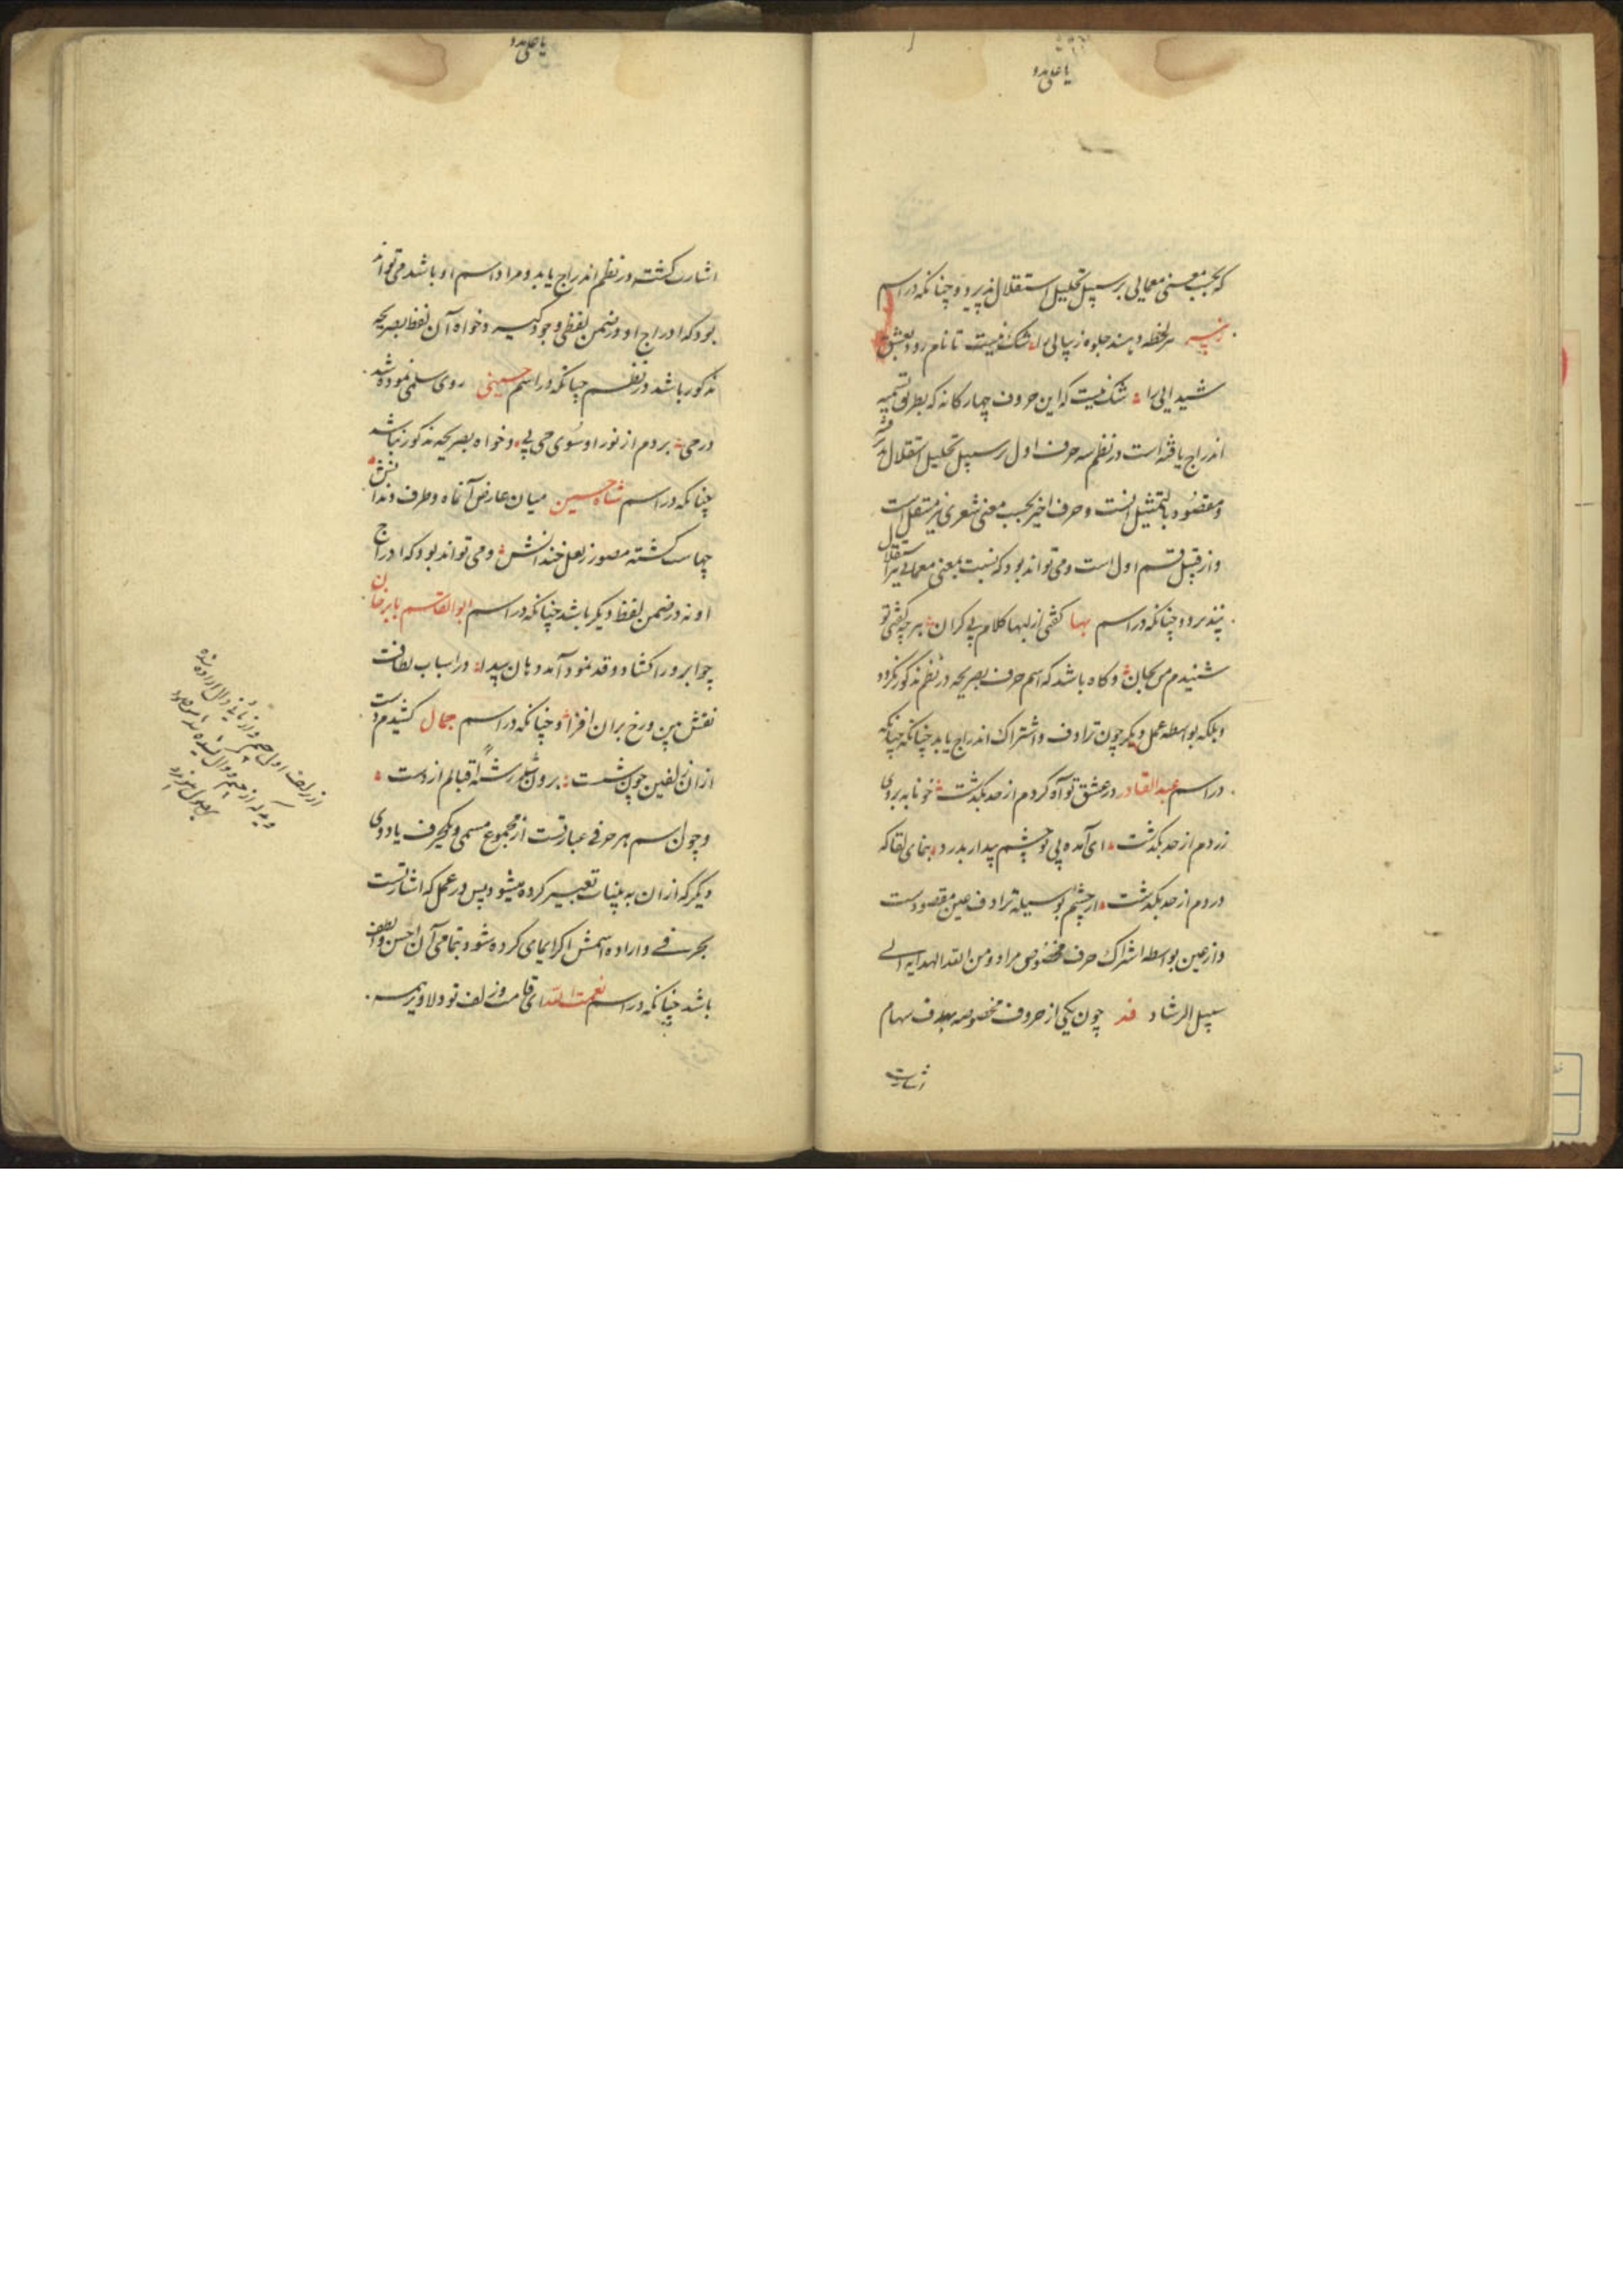 یا علی مدد
که بحسب معنی معمایی بر سپیل تحلیل استقلال نپذیرد و چنانکه در اسم
هر لحظه دهند جلوه زیبایی را شک نیست تا نام رود بعشق
شیدایی را شک نیست که این حروف چهار کانه که بطریق تسمیه
اندراج یافته است در نظم سه حرف اول بر سپیل تحلیل استقلال
و مقصود بالتمثیل انست و حرف اخیر بحسب معنی شعری نیز مستقل است
و از قبیل قسم اول است و می تواند بود که نسبت بمعنی معمایی نیز استقلال
نپذیرد و چنانکه در اسم بها کفتی از لبها کلام بی کران هر چه کفتی تو
شنیدم من بجان و کاه باشد که اسم حرف بصریحه در نظم مذکور نکردد
و بلکه بواسطه عمل دیکر چون ترادف و اشتراک اندراج یابد چنانکه چنانکه
در اسم عبد القادر در عشق تو آه کردم از حد بکذشت خونابه بروی
زردم از حد بکذشت ای آمده پی تو چشم پیدار بدرد بنمای لقا که
دردم از حد بکذشت از چشم بوسیله ترادف عین مقصودست
و از عین بواسطه اشتراک حرف مخصوص مراد و من الله الهدایه الی
سپیل الرشاد چون یکی از حروف مخصوصه هدف سهام
اشارت
یا علی مدد
اشارت کشته در نظم اندراج یابد و مراد اسم او باشد می تواند
بود که ادراج او در ضمن لفظی وجود کیرد و خواه آن لفظ بصریحه
مذکور باشد در نظم چنانکه در اسم حسینی روی سلمی نموده شد
در حی بردم از نور او سوی حی پی و خواه بصریحه مذکور نباشد
چنانکه در اسم شاه حسین میان عارض آنماه و طرف دندانش
چهاست کشته مصور ز لعل خندانش و می تواند بود که ادراج
او نه در ضمن لفظ دیکر باشد چنانکه در اسم ابو القاسم بابر خان
چو ابرو را کشاد و قد نمود آمد دهان پیدا در اسباب لطافت
نقش بین و رخ بران افزا و چنانکه در اسم جمال کشیدم دست
ازان زلفین چون شست برون شد رشته اقبالم از دست
و چون اسم هر حرفی عبارتست از مجموع مسمی و یکحرف یا دوی
دیکر که ازان به بینات تعبیر کرده میشود پس در عمل که اشارتست
بحرفی و اراده اسمش اکر ایمای کرده شود بتمامی آن احسن و الطف
باشد چنانکه در اسم نعمت الله ای قامت و زلف تو دلاویز همه